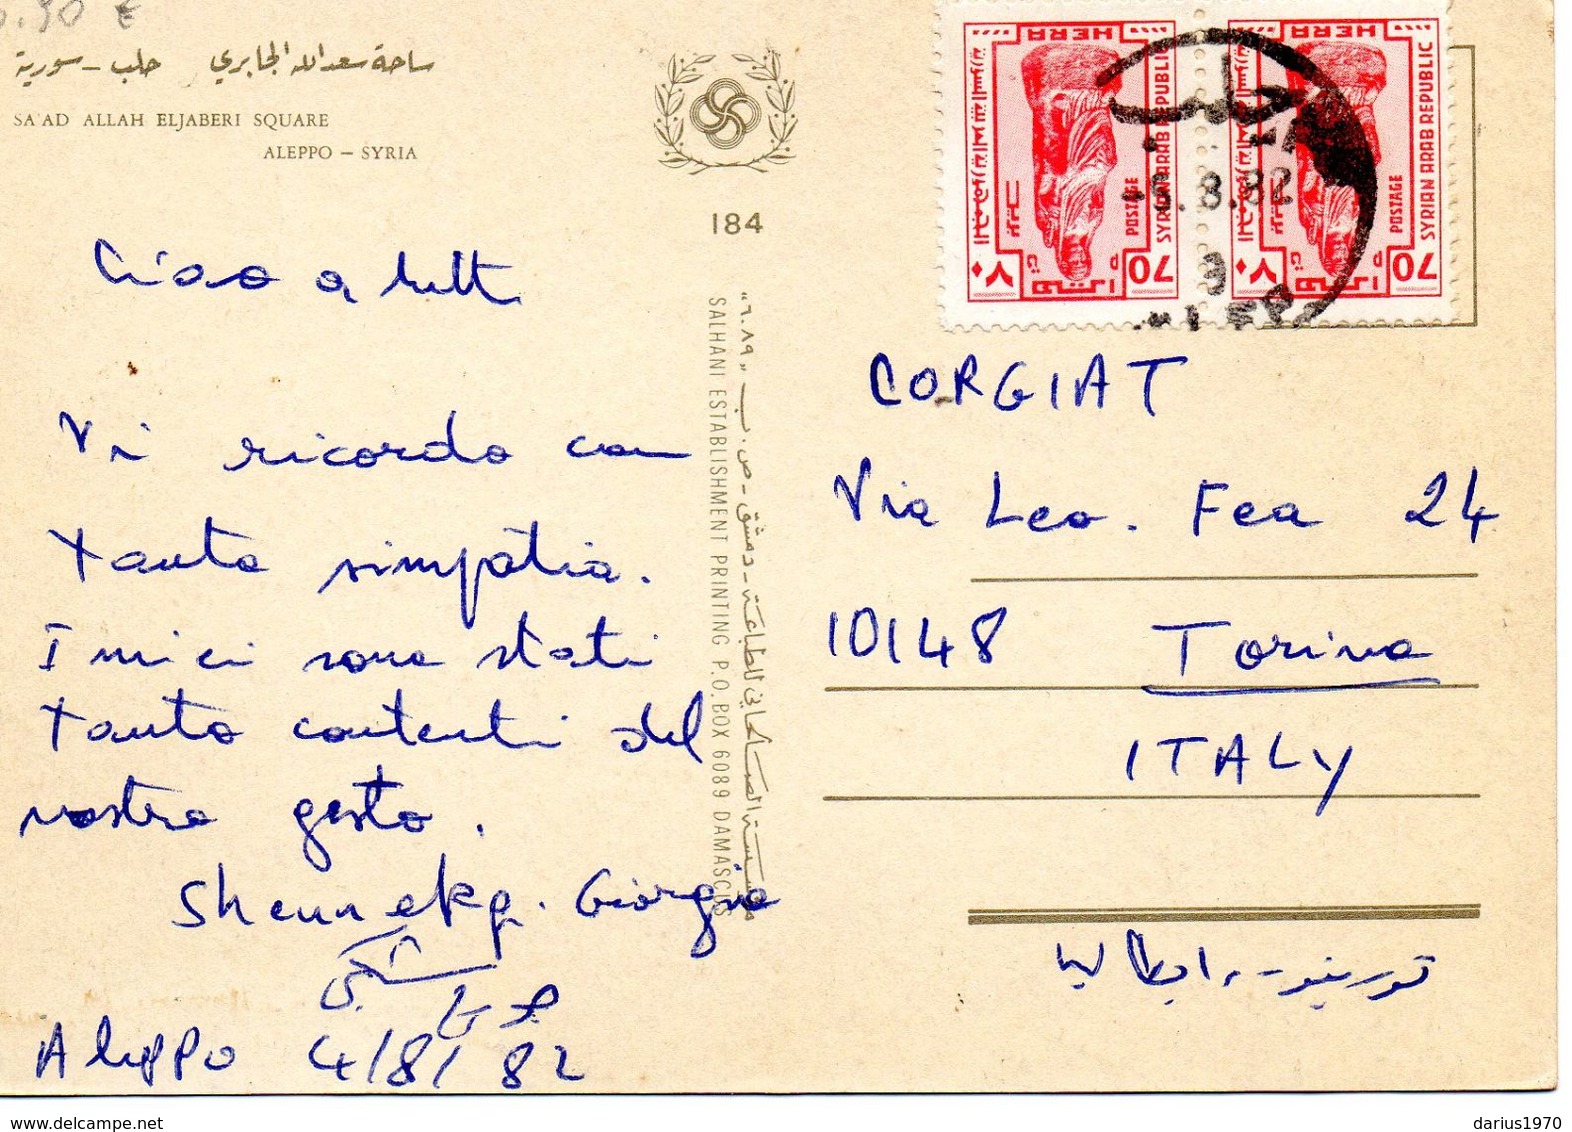 0.90 €
ساحة سعد الله الجابري حلب - سورية
SA'AD ALLAH ELJABERI SQUARE
ALEPPO – SYRIA
184
Ciao a tutti
Vi ricordo con
tanta simpatia.
I miei sono stati
tanto contenti del
vostro gesto.
Giorgio
Aleppo 4/8/82
مؤسسة الصالحاني للطباعة - دمشق - ص.ب "٦٠٨٩"
SALHANI ESTABLISHMENT PRINTING P.O.BOX 6089 DAMASCUS
HERA
POSTAGE
SYRIAN ARAB REPUBLIC
70
٧٠
HERA
POSTAGE
SYRIAN ARAB REPUBLIC
70
٧٠
حلب
-5.8.82
CORGIAT
Via Leo. Fea 24
10148 Torino
ITALY
تورينو - ايطاليا
www.delcampe.net
darius1970